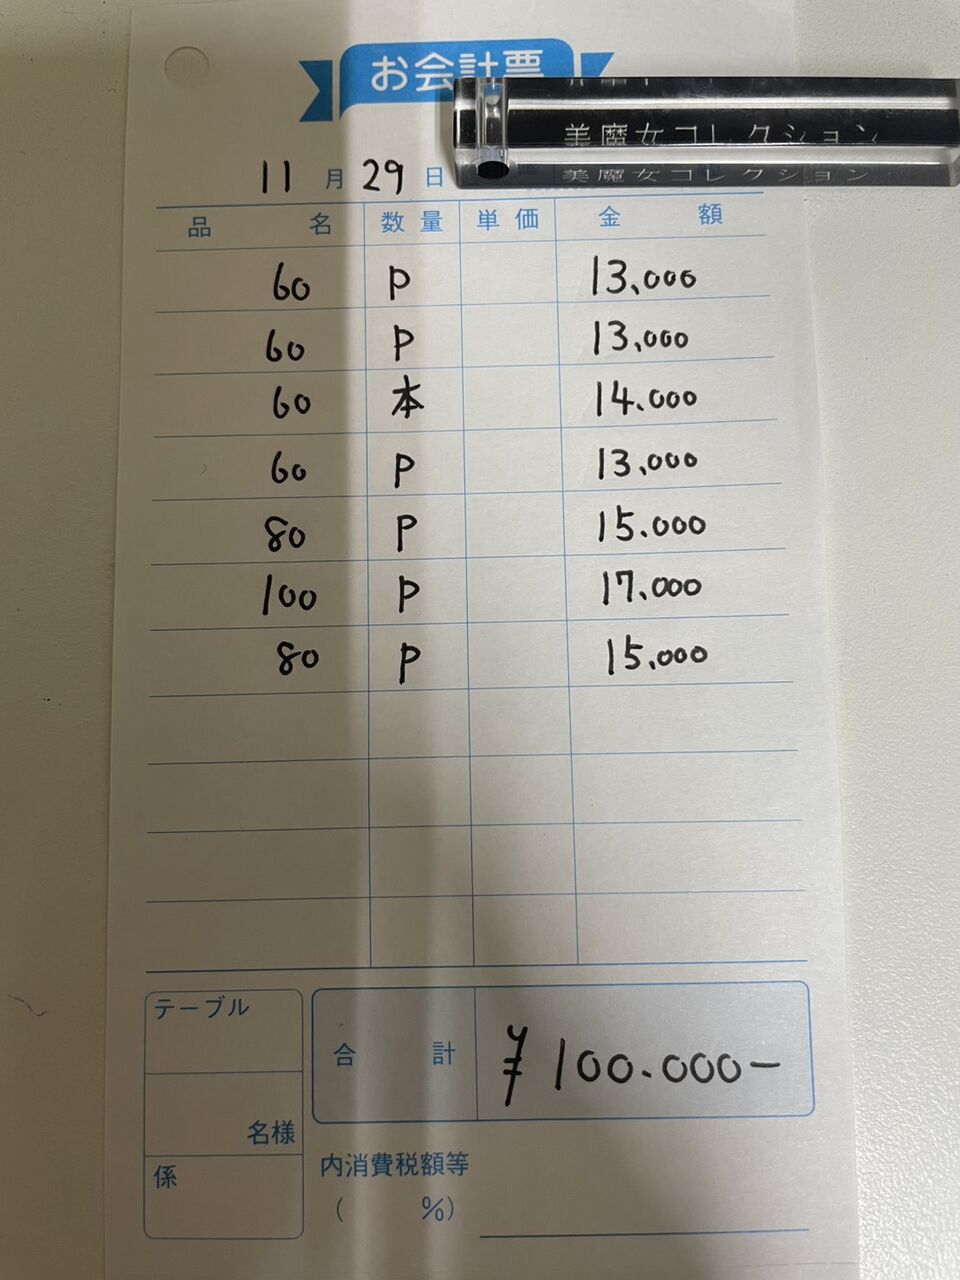 お会計票
美魔女コレクション
美魔女コレクション
11月29日
品名 数量 単価 金額
60 P 13,000
60 P 13,000
60 本 14.000
60 P 13,000
80 P 15.000
100 P 17,000
80 P 15,000
テーブル
合計 ¥100.000-
名様
係
内消費税額等
( %)